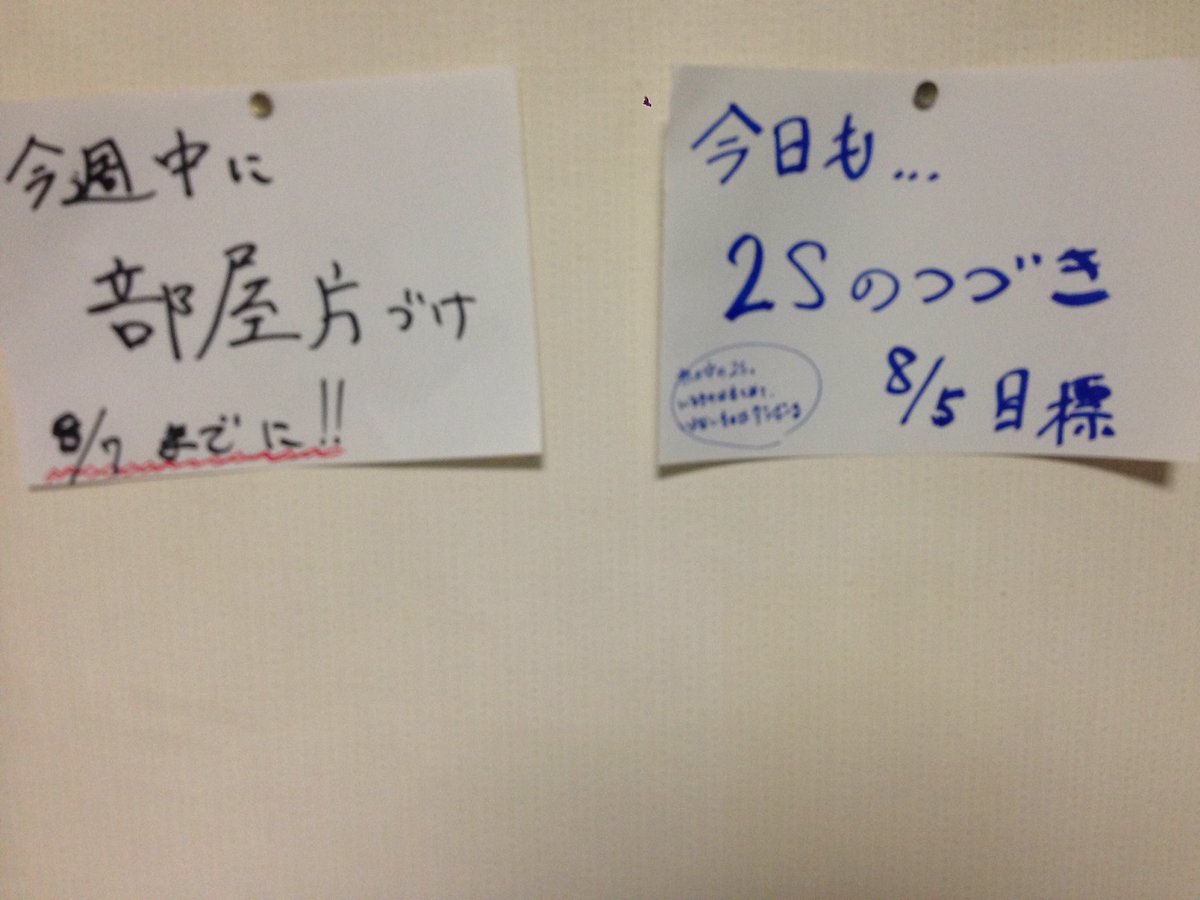 今週中に
部屋片づけ
8/7までに!!
今日も...
2Sのつづき
8/5目標